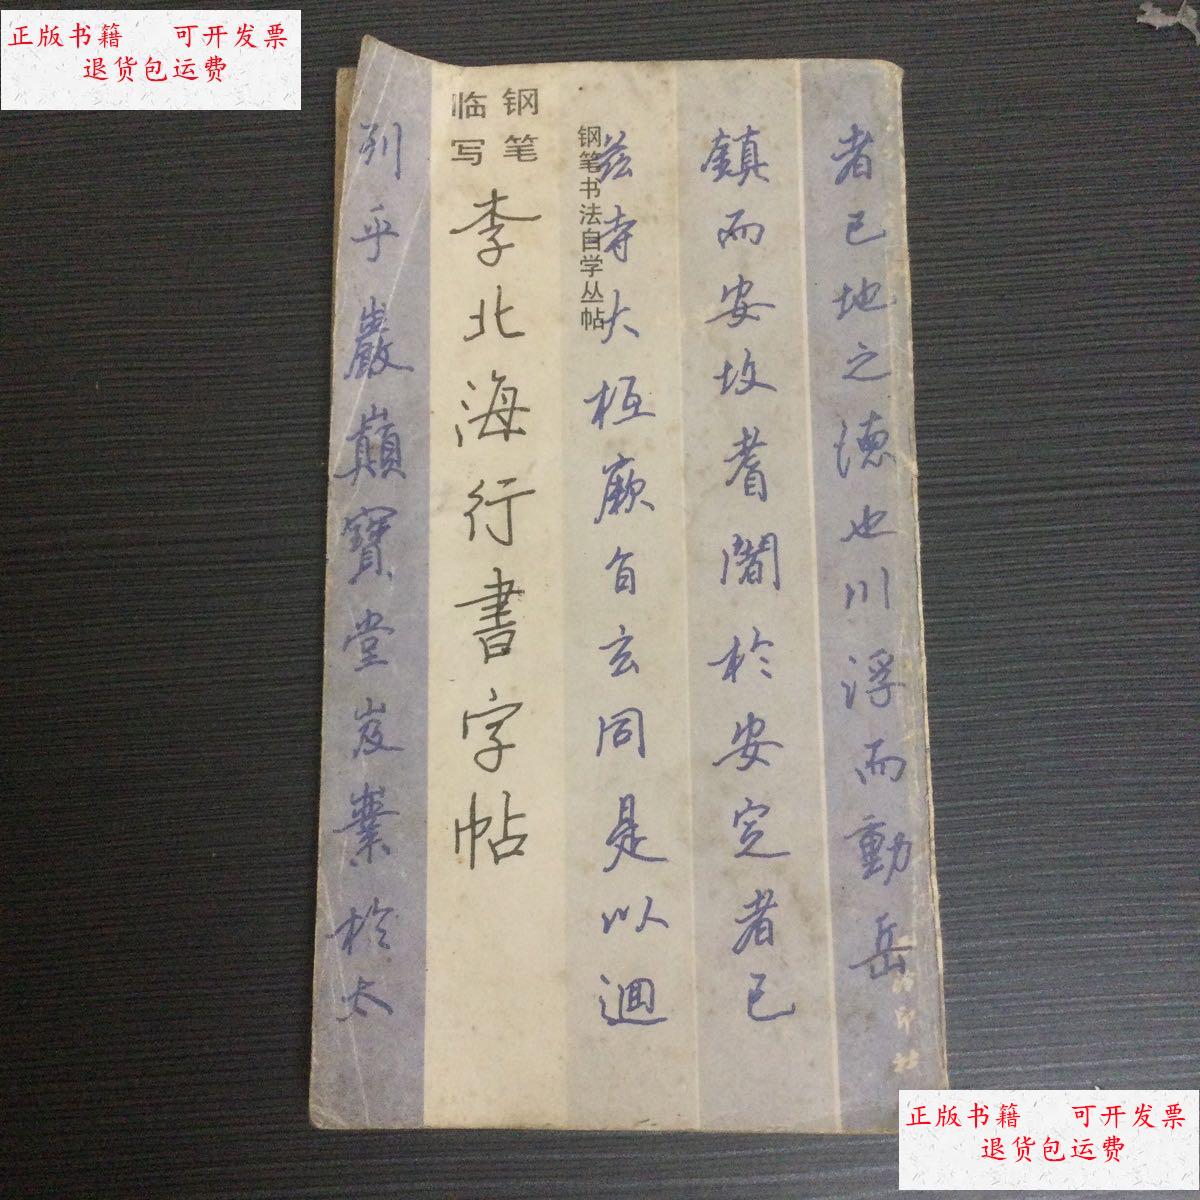 正版书籍 可开发票
退货包运费
者已地之德也川浮而動岳
鎮而安故耆闍於安定者已
茲寺大極厥旨玄同是以迴
钢笔书法自学丛帖
钢笔
临写
李北海行書字帖
列乎巖巔寶堂岌業於太
印社
正版书籍 可开发票
退货包运费